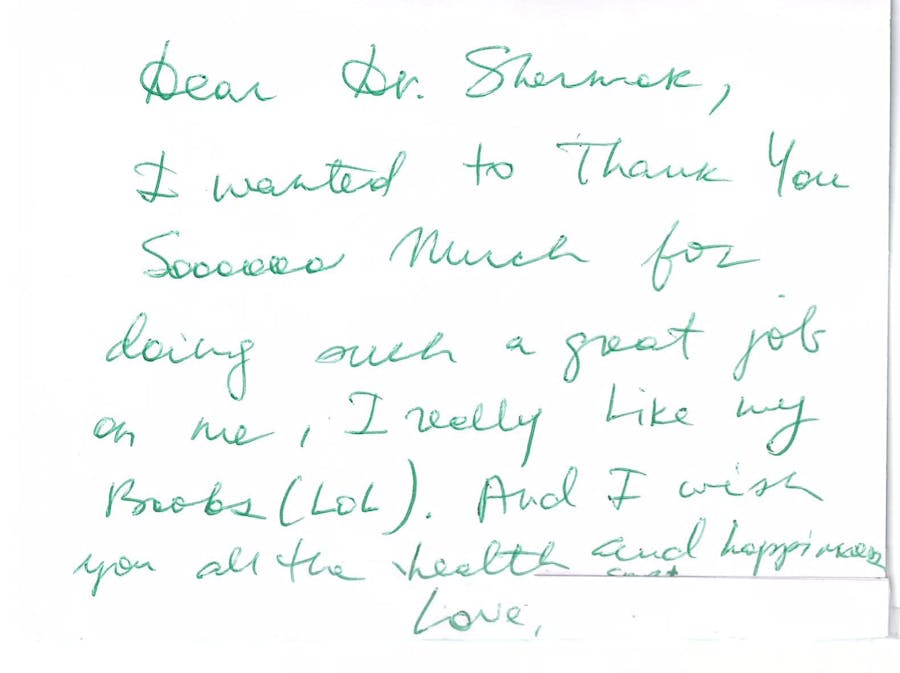 Dear Dr. Shermak,
I wanted to Thank You
Sooooooo Much for
doing such a great job
on me, I really Like my
Boobs (LoL). And I wish
you all the health and happiness
Love,